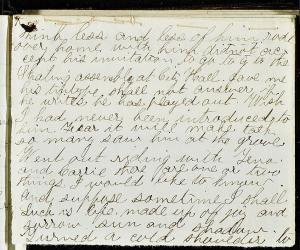 think less and less of him, rode
over home with him did not ac-
cept his invitation to go to the
Skating assembly at City Hall. Gave me
his tintype, shall not answer if
he writes he has played out. Wish
I had never been introduced to
him. Fear it will make talk
so many saw him at the grove.
Went out riding with Lena
and Carrie there are one or two
things I would like to know
and suppose sometime I shall
Such is life, made up of joy and
sorrow sun and shadow.
Turned a cold shoulder to